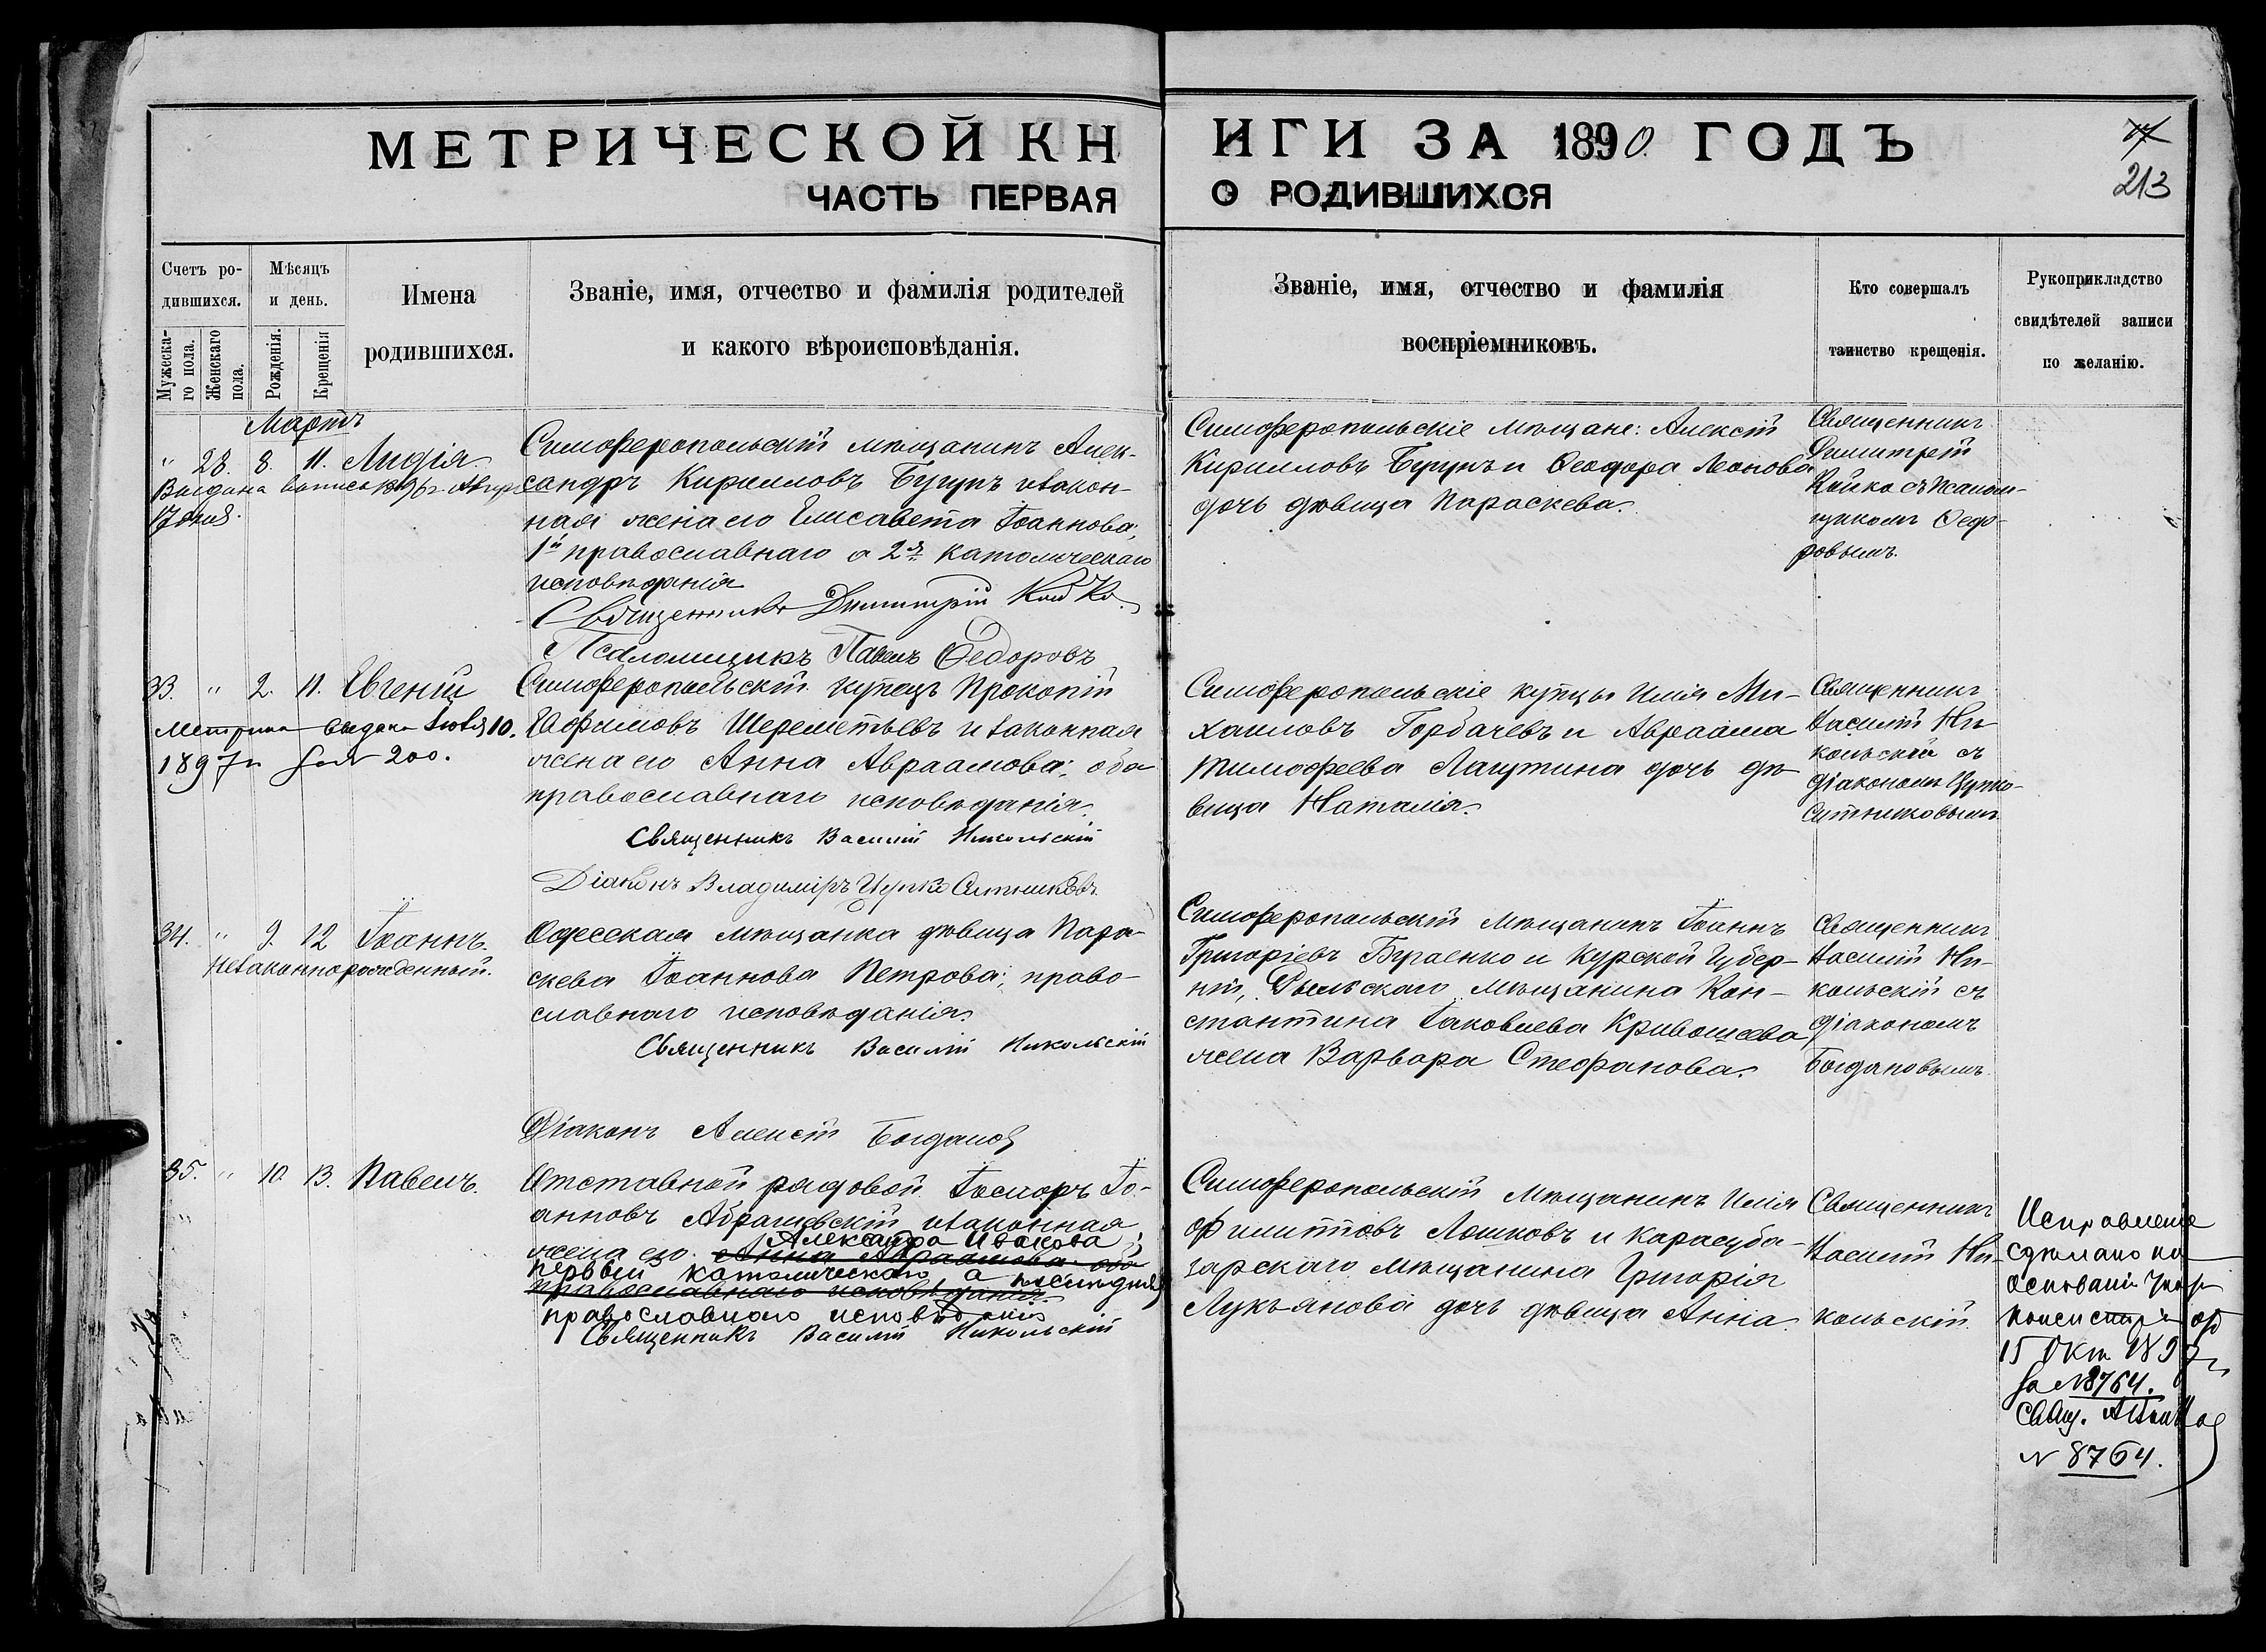 МЕТРИЧЕСКОЙ КНИГИ ЗА 1890 ГОДЪ
ЧАСТЬ ПЕРВАЯ О РОДИВШИХСЯ
213
Счетъ ро-
дившихся.
Мужеска-
го пола.
Женскаго
пола.
Мѣсяцъ
и день.
Рожденія.
Крещенія
Имена
родившихся.
Званіе, имя, отчество и фамилія родителей
и какого вѣроисповѣданія.
Званіе, имя, отчество и фамилія
воспріемниковъ.
Кто совершалъ
таинство крещенія.
Рукоприкладство
свидѣтелей записи
по желанію.
Мартъ
" 28. 8. 11. Лидія
Выдана выпись 1896 г. Августа
17 дня.
Симферопольскій мѣщанинъ Алек-
сандръ Кирилловъ Бугунъ и закон-
ная жена его Елисавета Іоаннова;
1й православнаго а 2я католическаго
исповѣданія
Священникъ Димитрій Койко
Псаломщикъ Павелъ Федоровъ
Симферопольскіе мѣщане: Алексій
Кирилловъ Бугунъ и Ѳеодора Леонова
дочь дѣвица Параскева.
Священникъ
Димитрій
Койко съ псалом-
щикомъ Ѳедо-
ровымъ.
33. " 2. 11. Евгеній
Метрика выдана Іюля 10.
1897 г. за № 200.
Симферопольскій купецъ Прокопій
Евфимовъ Шереметьевъ и законная
жена его Анна Авраамова; оба
православнаго исповѣданія.
Священникъ Василій Никольскій
Діаконъ Владиміръ Цупко Ситниковъ
Симферопольскіе купцы Илія Ми-
хаиловъ Горбачевъ и Авраама
Тимоѳеева Лагутина дочь дѣ-
вица Наталія.
Священникъ
Василій Ни-
кольскій съ
діакономъ Цупко-
Ситниковымъ
34. " 9. 12 Іоаннъ.
Незаконнорожденный.
Одесская мѣщанка дѣвица Пара-
скева Іоаннова Петрова; право-
славнаго исповѣданія.
Священникъ Василій Никольскій
Діаконъ Алексій Богдановъ
Симферопольскій мѣщанинъ Іоаннъ
Григоріевъ Бураенко и Курской Губер-
ніи, Рыльскаго мѣщанина Кон-
стантина Іаковлева Кривошеева
жена Варвара Стефанова.
Священникъ
Василій Ни-
кольскій съ
діакономъ
Богдановымъ.
35. " 10. 13. Павелъ.
Отставной рядовой Іосифъ Іо-
анновъ Абрашевскій и законная
Александра Ивакова;
жена его Анна Авраамова; оба
первый католическаго а послѣдняя
православнаго исповѣданія.
православнаго исповѣданія
Священникъ Василій Никольскій
Симферопольскій мѣщанинъ Илія
Филипповъ Лошковъ и Карасуба-
зарскаго мѣщанина Григорія
Лукьянова дочь дѣвица Анна.
Священникъ
Василій Ни-
кольскій.
Исправленіе
сдѣлано на
основаніи Указа
Консисторіи отъ
15 Окт 1897 г.
за №8764.
Свящ.
№ 8764.